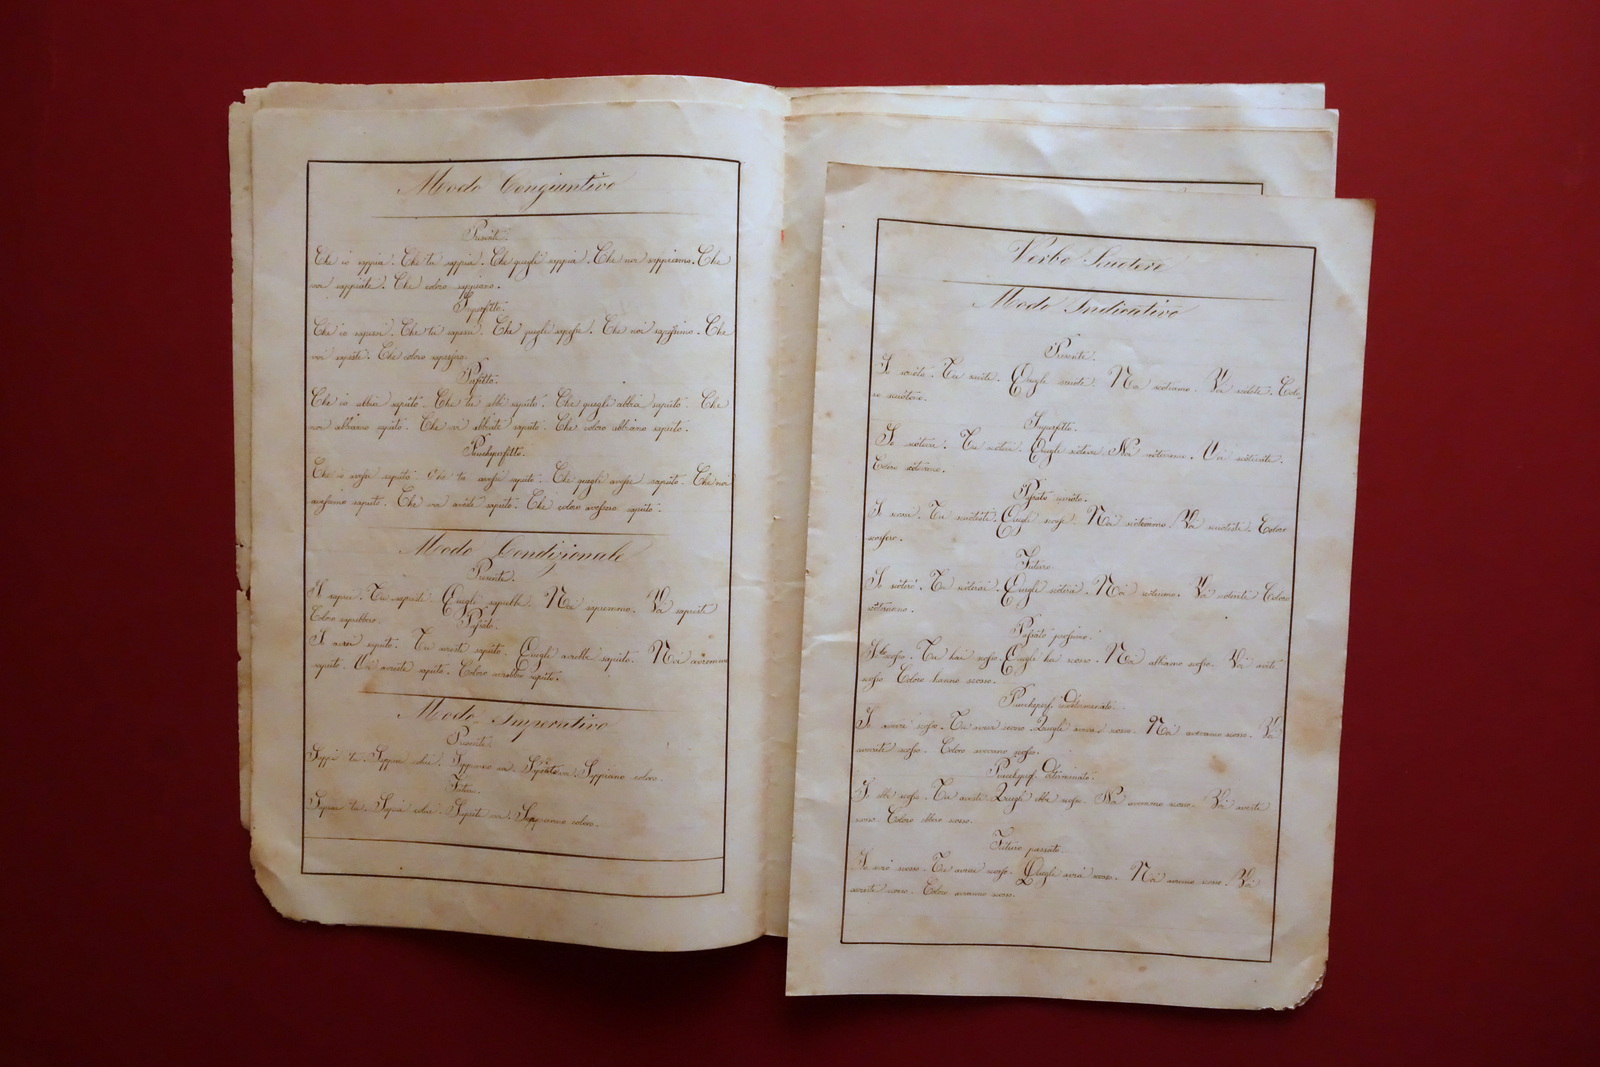 Modo Congiuntivo
Presente.
Che io sappia. Che tu sappia. Che quegli sappia. Che noi sappiamo. Che
voi sappiate. Che coloro sappiano.
Imperfetto.
Che io sapessi. Che tu sapessi. Che quegli sapesse. Che noi sapessimo. Che
voi sapeste. Che coloro sapessero.
Perfetto.
Che io abbia saputo. Che tu abbi saputo. Che quegli abbia saputo. Che
noi abbiamo saputo. Che voi abbiate saputo. Che coloro abbiano saputo.
Piucheperfetto.
Che io avessi saputo. Che tu avessi saputo. Che quegli avesse saputo. Che noi
avessimo saputo. Che voi aveste saputo. Che coloro avessero saputo.
Modo Condizionale
Presente.
Io saprei. Tu sapresti. Quegli saprebbe. Noi sapremmo. Voi sapreste
Coloro saprebbero.
Passato.
Io avrei saputo. Tu avresti saputo. Quegli avrebbe saputo. Noi avremmo
saputo. Voi avreste saputo. Coloro avrebbero saputo.
Modo Imperativo
Presente.
Sappi tu. Sappia colui. Sappiamo noi. Sappiate voi. Sappiano coloro.
Futuro.
Saprai tu. Saprà colui. Saprete voi. Sapranno coloro.
Verbo Scuotere
Modo Indicativo
Presente.
Io scuoto. Tu scuoti. Quegli scuote. Noi scotiamo. Voi scotete. Colo
ro scuotono.
Imperfetto.
Io scoteva. Tu scotevi. Quegli scoteva. Noi scotevamo. Voi scotevate.
Coloro scotevano.
Passato rimoto.
Io scossi. Tu scuotesti. Quegli scosse. Noi scotemmo. Voi scuoteste. Coloro
scossero.
Futuro.
Io scoterò. Tu scoterai. Quegli scoterà. Noi scoteremo. Voi scoterete Coloro
scoteranno.
Passato prossimo.
Io ho scosso. Tu hai scosso. Quegli ha scosso. Noi abbiamo scosso. Voi avete
scosso Coloro hanno scosso.
Piucheperf. indeterminato.
Io aveva scosso. Tu avevi scosso. Quegli aveva scosso. Noi avevamo scosso. Voi
avevate scosso. Coloro avevano scosso.
Piucheperf. determinato.
Io ebbi scosso. Tu avesti Quegli ebbe scosso. Noi avemmo scosso. Voi aveste
scosso. Coloro ebbero scosso.
Futuro passato.
Io avrò scosso. Tu avrai scosso. Quegli avrà scosso. Noi avremo scosso. Voi
avrete scosso. Coloro avranno scosso.